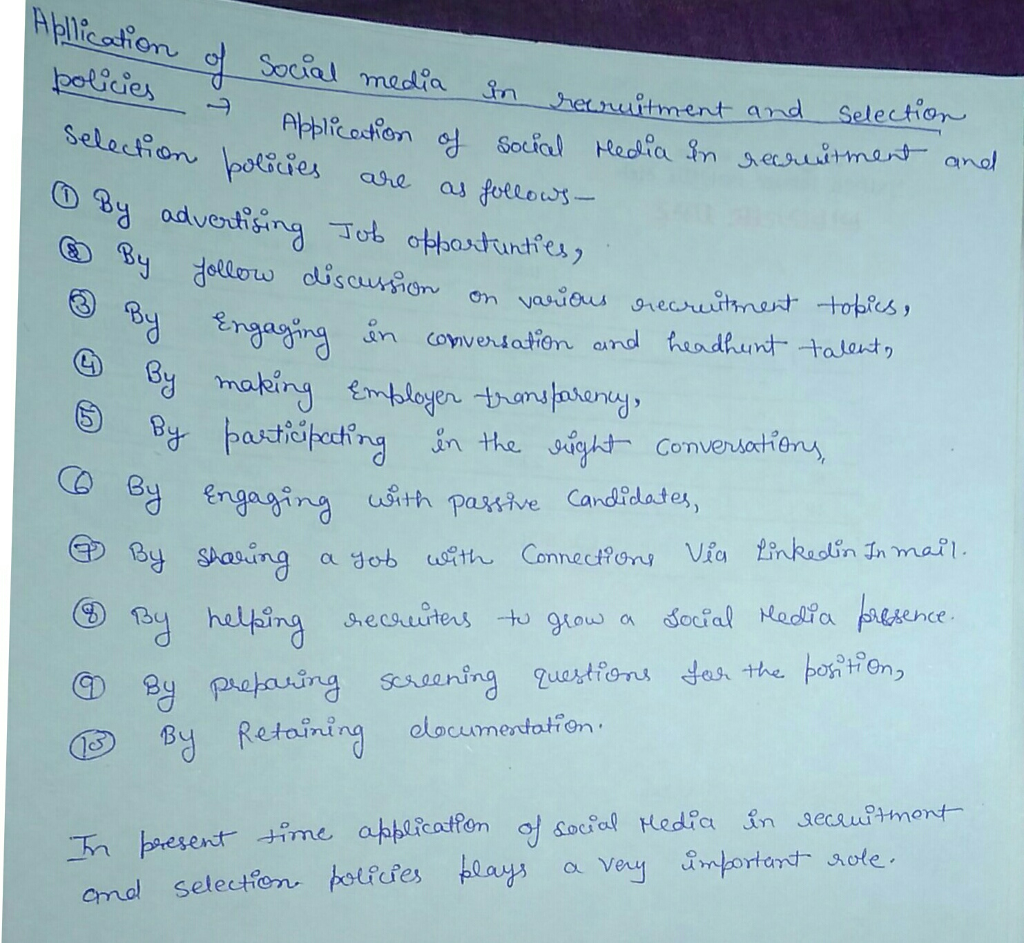 Application of Social media in recruitment and Selection
policies → Application of Social Media in recruitment and
Selection policies are as follows—
① By advertising Job opportunties,
② By follow discussion on various recruitment topics,
③ By Engaging in conversation and headhunt talent,
④ By making Employer transparency,
⑤ By participating in the right Conversations,
⑥ By Engaging with passive Candidates,
⑦ By sharing a job with Connections Via Linkedin Inmail.
⑧ By helping recruiters to grow a Social Media presence.
⑨ By preparing screening questions for the position,
⑩ By Retaining documentation.
In present time application of social Media in recruitment
and selection policies plays a very important role.